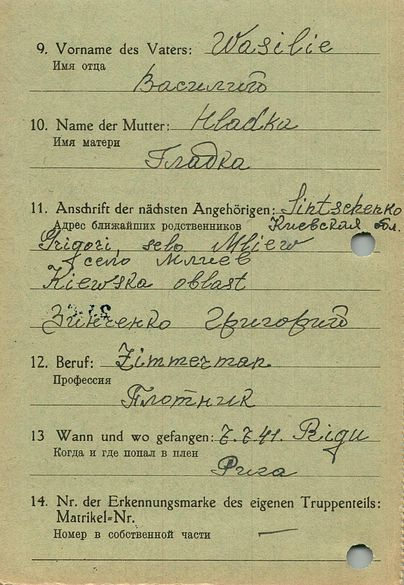 9. Vorname des Vaters: Wasilie
Имя отца
Василий
10. Name der Mutter: Hladka
Имя матери
Гладка
11. Anschrift der nächsten Angehörigen: Sintschenko
Адрес ближайших родственников Киевская обл.
Grigori, selo Mliew
село Млиев
Kiewska oblast
Зинченко Григорий
12. Beruf: Zimmerman
Профессия
Плотник
13 Wann und wo gefangen: 7.7.41. Rigu
Когда и где попал в плен
Рига
14. Nr. der Erkennungsmarke des eigenen Truppenteils:
Matrikel-Nr. —
Номер в собственной части